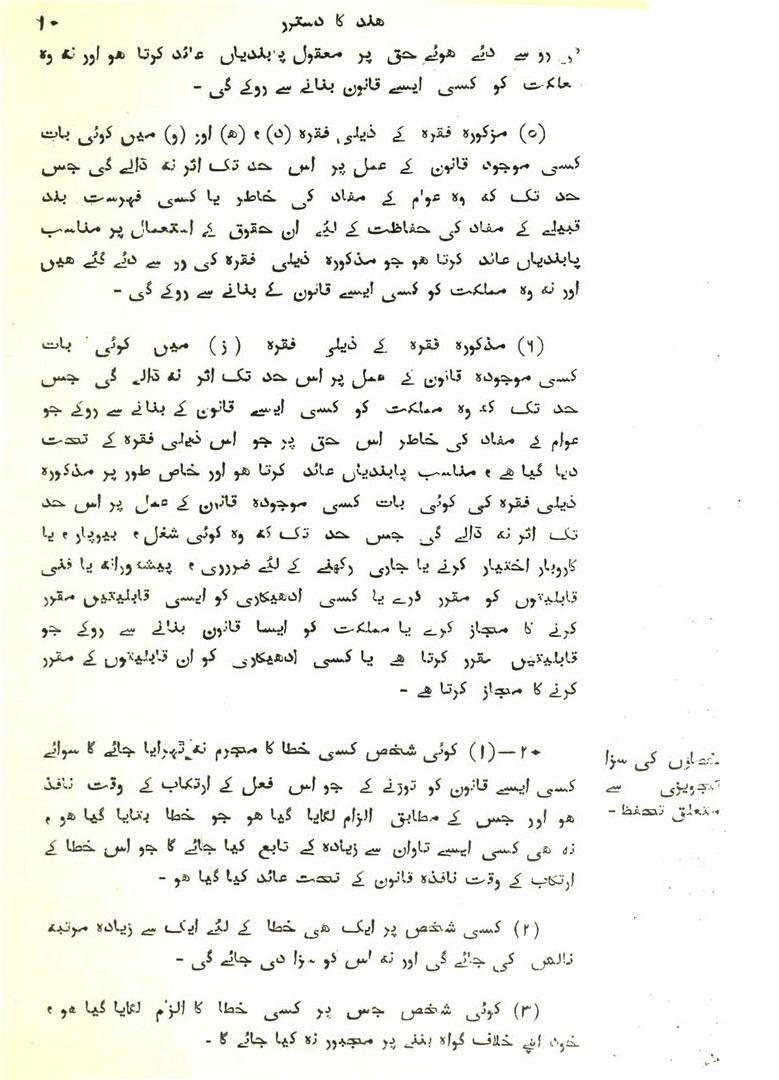 ھند کا دستور ۱۰
رو سے دئے ھوئے حق پر معقول پابندیاں عائد کرتا ھو اور نہ وہ
مملکت کو کسی ایسے قانون بنانے سے روکے گی -
(۵) مزکورہ فقرہ کے ذیلی فقرہ (د) ، (ھ) اور (و) میں کوئی بات
کسی موجود قانون کے عمل پر اس حد تک اثر نہ ڈالے گی جس
حد تک کہ وہ عوام کے مفاد کی خاطر یا کسی فہرست بند
قبیلے کے مفاد کی حفاظت کے لئے ان حقوق کے استعمال پر مناسب
پابندیاں عائد کرتا ھو جو مذکورہ ذیلی فقرہ کی ور سے دئے گئے ھیں
اور نہ وہ مملکت کو کسی ایسے قانون کے بنانے سے روکے گی -
(۶) مذکورہ فقرہ کے ذیلی فقرہ (ز) میں کوئی بات
کسی موجودہ قانون کے عمل پر اس حد تک اثر نہ ڈالے گی جس
حد تک کہ وہ مملکت کو کسی ایسے قانون کے بنانے سے روکے جو
عوام کے مفاد کی خاطر اس حق پر جو اس ذیلی فقرہ کے تحت
دیا گیا ھے ، مناسب پابندیاں عائد کرتا ھو اور خاص طور پر مذکورہ
ذیلی فقرہ کی کوئی بات کسی موجودہ قانون کے عمل پر اس حد
تک اثر نہ ڈالے گی جس حد تک کہ وہ کوئی شغل ، بیوپار ، یا
کاروبار اختیار کرنے یا جاری رکھنے کے لئے ضرری ، پیشہ ورانہ یا فنی
قابلیتوں کو مقرر کرے یا کسی ادھیکاری کو ایسی قابلیتیں مقرر
کرنے کا مجاز کرے یا مملکت کو ایسا قانون بنانے سے روکے جو
قابلیتیں مقرر کرتا ھے یا کسی ادھیکاری کو ان قابلیتوں کے مقرر
کرنے کا مجاز کرتا ھے -
خطاؤں کی سزا
تجویزی سے
متعلق تحفظ -
۲۰—(۱) کوئی شخص کسی خطا کا مجرم نہ ٹہرایا جائے گا سوائے
کسی ایسے قانون کو توڑنے کے جو اس فعل کے ارتکاب کے وقت نافذ
ھو اور جس کے مطابق الزام لگایا گیا ھو جو خطا بتایا گیا ھو ،
نہ ھی کسی ایسے تاوان سے زیادہ کے تابع کیا جائے گا جو اس خطا کے
ارتکاب کے وقت نافذہ قانون کے تحت عائد کیا گیا ھو -
(۲) کسی شخص پر ایک ھی خطا کے لئے ایک سے زیادہ مرتبہ
نالش کی جائے گی اور نہ اس کو سزا دی جائے گی -
(۳) کوئی شخص جس پر کسی خطا کا الزام لگایا گیا ھو ،
خود اپنے خلاف گواہ بننے پر مجبور نہ کیا جائے گا -